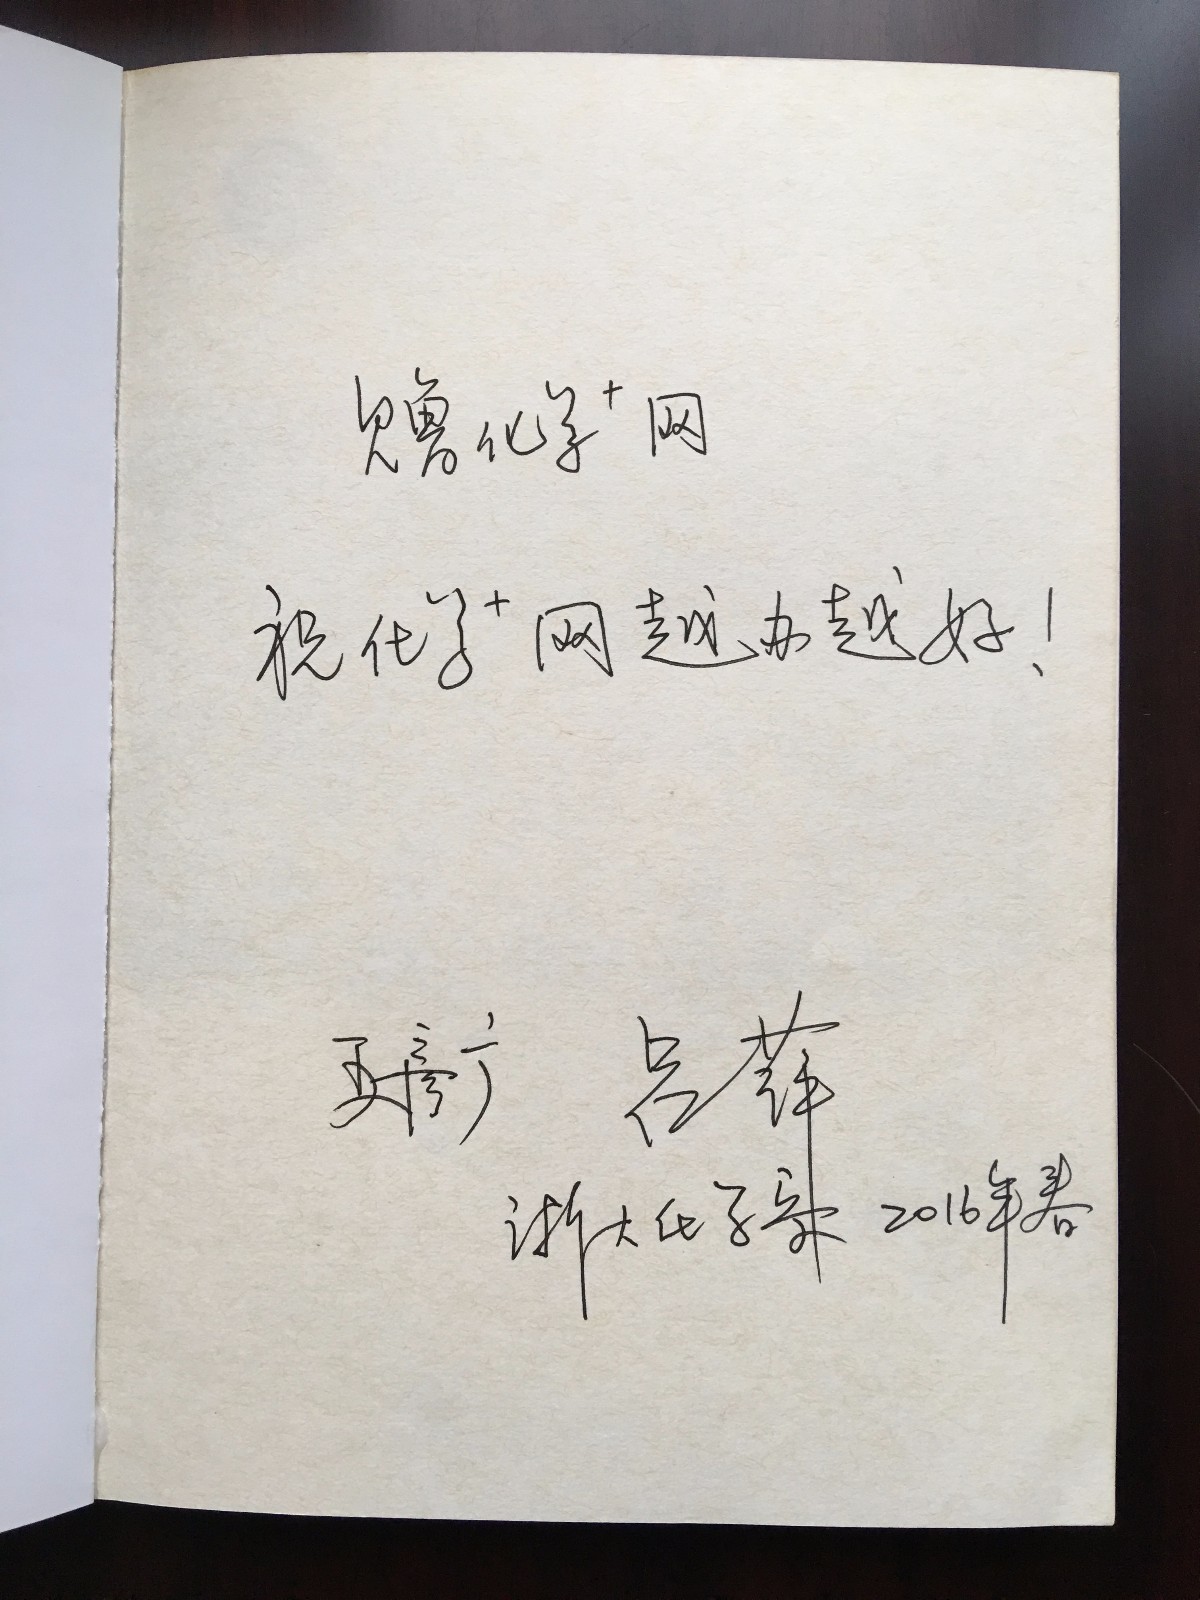 赠化学+网
祝化学+网越办越好!
王彦广 吕萍
浙大化学系 2016年春